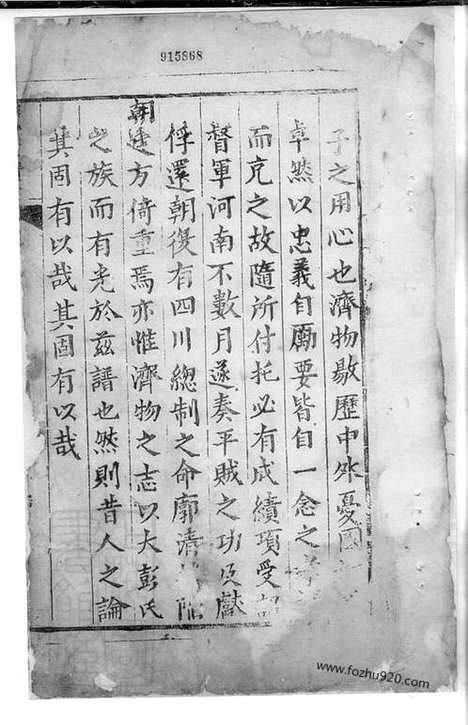 915868
子之用心也濟物敭歷中外憂國
卓然以忠義自勵要皆自一念之
而充之故隨所付托必有成績項受
督軍河南不數月遂奏平賊之功及獻
俘還朝復有四川總制之命廓清
朝廷方倚重焉亦惟濟物之志以大彭氏
之族而有光於兹譜也然則昔人之論
其固有以哉其固有以哉
www.fozhu920.com